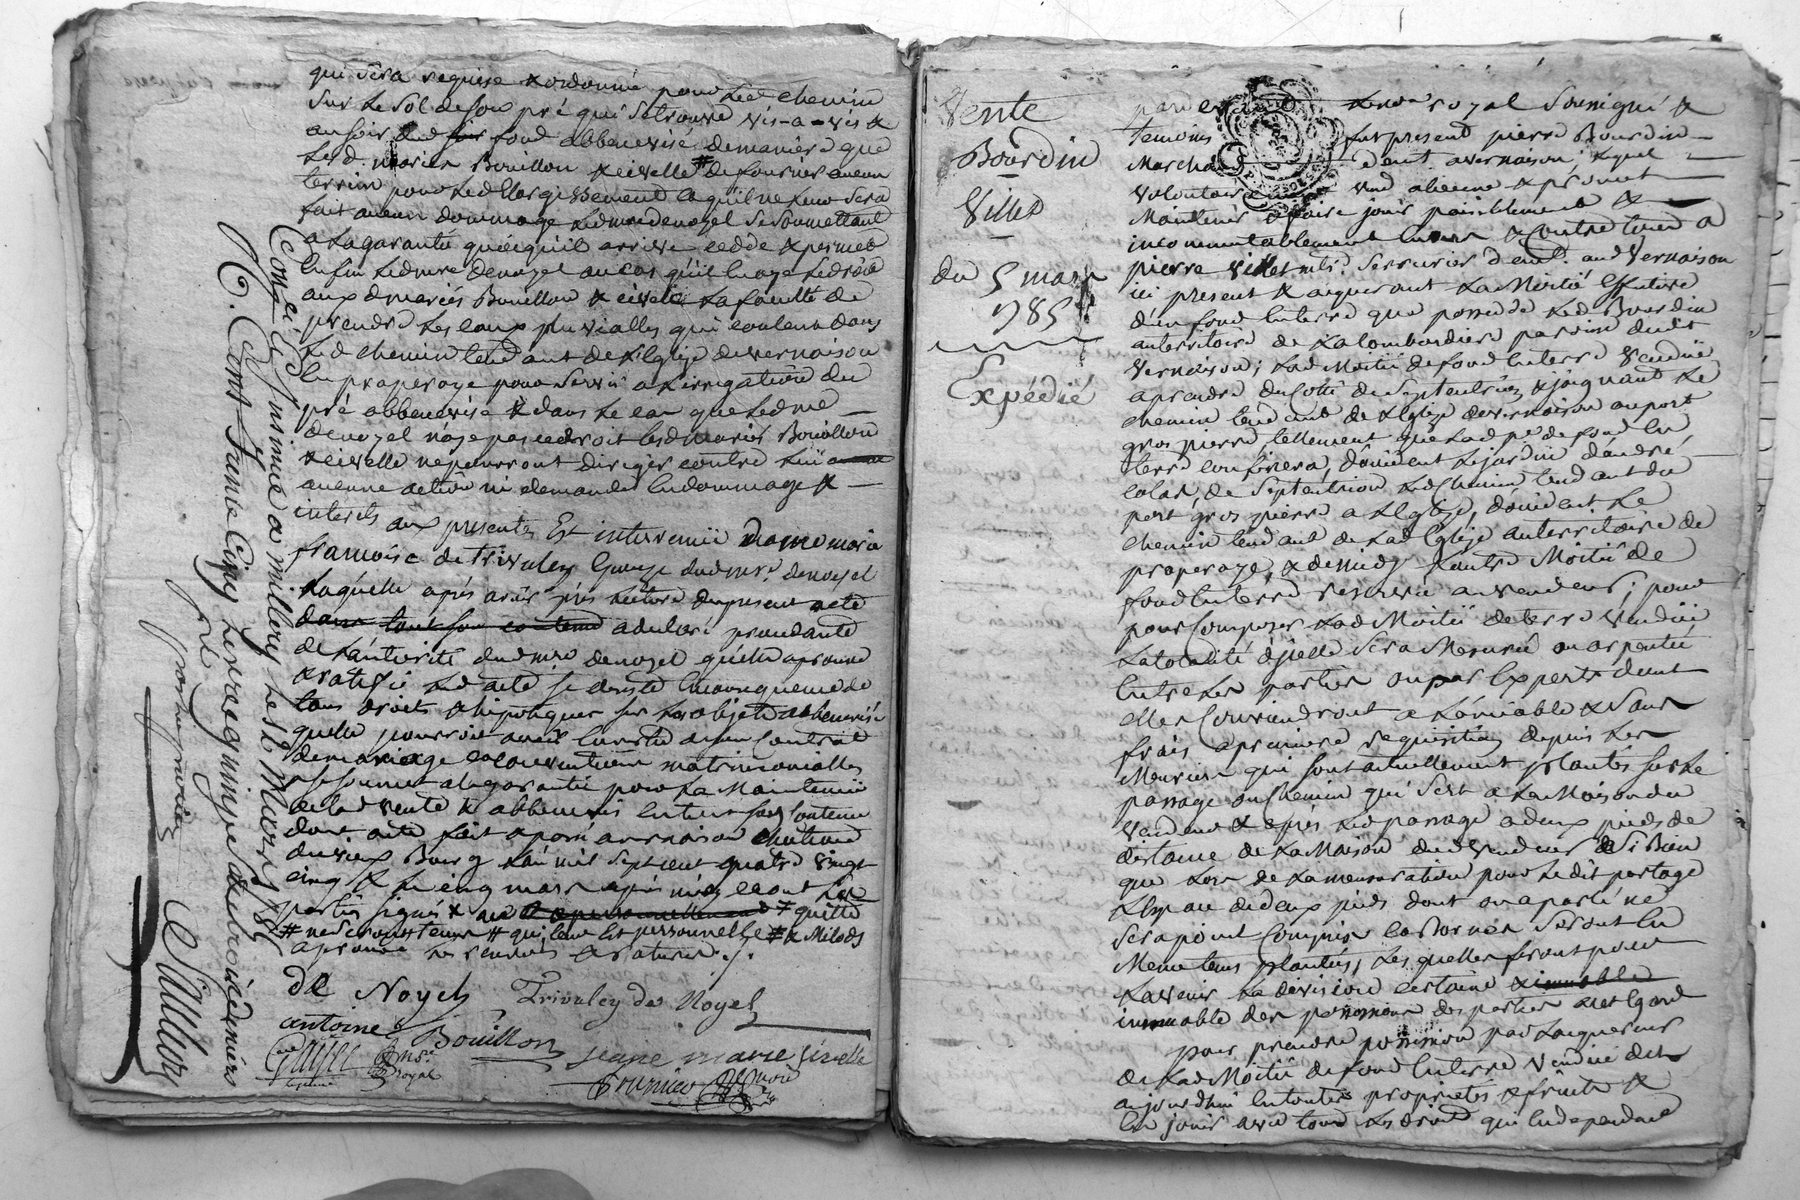 qui sera requise & ordonné pour led chemin
sur le sol de son pré qui se trouve vis-a-vis &
au soir dud fond abbenevisé de maniere que
led. mariés Bouillon & eivelle # de fournir aucun
terrin pour led Elargissement & qu'il ne leur sera
fait aucun dommage led mre denoyel se soumettant
a la garantie quoiqu'il arrive cedde & permet
Enfin led mre denoyel au cas qu'il en aye le droit
aux d mariés Bouillon & eivelle la faculté de
prendre les eaux pluvialles qui coulent dans
led chemin tendant de l'Eglise de vernaison
en properaye pour servir a l'irrigation du
pré abbenevisé & dans le cas que led mre
denoyel n'aye pas ce droit lesd mariés Bouillon
& eivelle ne pourront diriger contre lui
aucune action ni demander en dommage &
interets aux presentes Est intervenüe dame marie
francoise de trivuley Epouze dud mre. denoyel
laquelle après avoir pris lecture du present acte
dans tout son contenu a déclaré procedante
de l'autorité dud mre denoyel qu'elle approuve
& ratifie led acte se departe
tous droits & hipoteques sur les objets abbenevisé
quelle pourroit avoir en vertu de son Contrat
de mariage et conventions matrimonialles
& se soumet a la garantie pour la Maintenüe
de lad vente & abbenevis en tout son contenu
dont acte fait & passé a vernaison chateau
du vieux Bourg l'an mil sept cent quatre vingt
cinq & le cinq mars après midy & ont les
parties signés & personnellement ≠ quitte
# ne seront tenus # qui leur est personnelle # & Milods
approuvé les renvois & ratures ./.
De Noyel Trivuley de Noyel
antoine Bouillon jeane marie Eivelle
royal fournier
Controllé & insinué a millery le 16 Mars 1785
R. Cent Trente Cinq livres quinze sols trois deniers
Saullon
Vente
Bourdin
Villet
du 5 mars
1785
Expédié
par royal soussigné &
temoins fut present pierre Bourdin
Marchand demt a vernaison, lequel
volontairement vend aliene & promet
Maintenir & faire jouir paisiblement &
incommutablement envers & Contre tous a
pierre Villet mtre. serrurier demt. aud Vernaison
ici present & acquerant la Moitié Effective
d'un fond en terre que possede led Bourdin
au territoire de la lombardiere paroisse dudit
Vernaison; lad Moitié de fond en terre Vendüe
a prendre du Cotté du septentrion & joignant le
chemin tendant de l'Eglise de vernaison au port
gros pierre tellement que lad pce de fond en
terre confinera, d'orient le jardin d'andré
colas, de septentrion led Chemin tendant du
port gros pierre a l'Eglise, d'occident le
chemin tendant de lad Eglise au territoire de
properaye, & de midy l'autre Moitié de
fond en terre reservée au vendeur; pour
pour Composer lad Moitié de terre Vendüe
la totalité d'jcelle sera Mesurée ou arpentée
entre les parties ou par Experts dont
elles Conviendront a l'amiable & sans
frais a premiere requisition depuis les
Meuriers qui sont actuellement plantés sur le
passage ou chemin qui sert a la Maison du
vendeur & après led passage a deux pieds de
distance de la Maison dud vendeur & si bien
que lors de la mensuration pour le dit partage
l'Espace de deux pieds dont on a parlé ne
sera point Compris et Bornes seront en
Meme tems plantées, lesquelles feront pour
l'avenir la division certaine & immuable
immuable des possessions des parties a cet Egard
pour prendre possession par l'acquereur
de lad Moitié de fond en terre Vendüe dès
aujourd'hui en toutes proprietés & fruits &
en jouir avec tous les droits qui en dependent